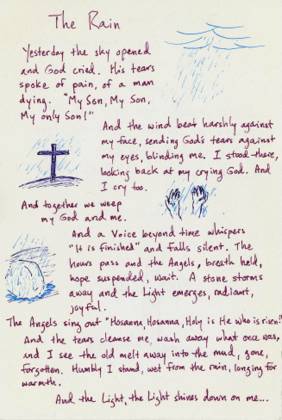 The Rain
Yesterday the sky opened
and God cried. His tears
spoke of pain, of a man
dying. "My Son, My Son,
My only Son!"
And the wind beat harshly against
my face, sending God's tears against
my eyes, blinding me. I stood there,
looking back at my crying God. And
I cry too.
And together we weep
my God and me.
And a Voice beyond time whispers
"It is finished" and falls silent. The
hours pass and the Angels, breath held,
hope suspended, wait. A stone storms
away and the Light emerges, radiant,
joyful.
The Angels sing out "Hosanna, Hosanna, Holy is He who is risen!"
And the tears cleanse me, wash away what once was,
and I see the old melt away into the mud, gone,
forgotten. Humbly I stand, wet from the rain, longing for
warmth.
And the Light, the Light shines down on me...